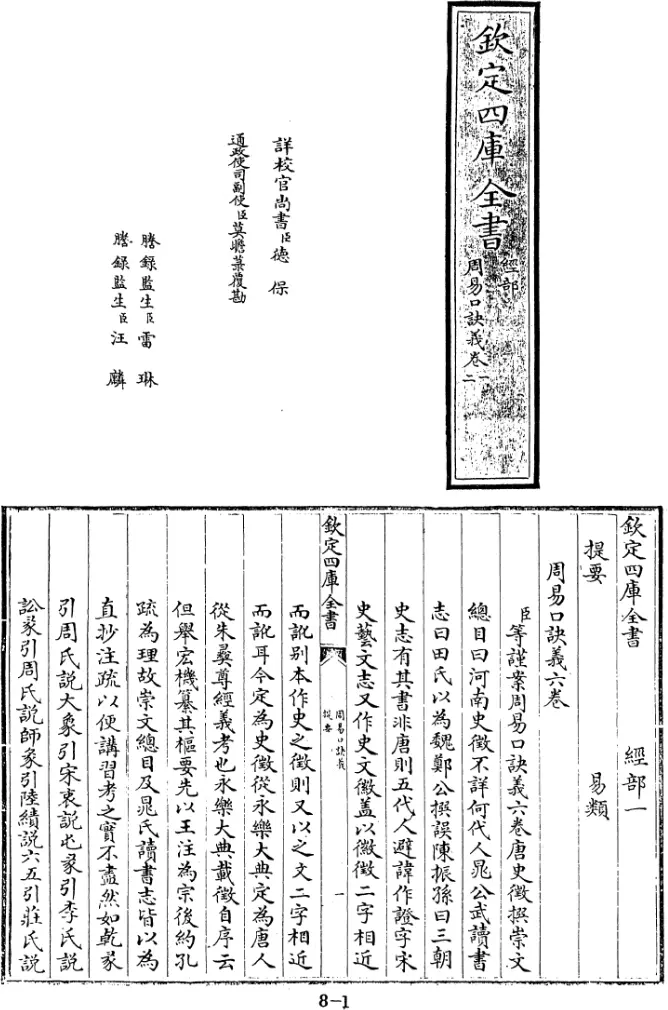 欽定四庫全書
經部
周易口訣義卷一
二
詳校官尚書臣德保
通政使司副使臣莫瞻菉覆勘
謄錄監生臣雷琳
謄錄監生臣汪麟
欽定四庫全書 經部一
提要 易類
周易口訣義六卷
臣等謹案周易口訣義六卷唐史徵撰崇文
總目曰河南史徵不詳何代人晁公武讀書
志曰田氏以為魏鄭公撰誤陳振孫曰三朝
史志有其書非唐則五代人避諱作證字宋
史藝文志又作史文徽蓋以徽徵二字相近
欽定四庫全書
周易口訣義
提要
一
而訛别本作史之徵則又以之文二字相近
而訛耳今定為史徵從永樂大典定為唐人
從朱彞尊經義考也永樂大典載徵自序云
但舉宏機纂其樞要先以王注為宗後約孔
疏為理故崇文總目及晁氏讀書志皆以為
直抄注疏以便講習考之實不盡然如乾彖
引周氏說大象引宋衷說屯彖引李氏說
訟彖引周氏說師象引陸績說六五引莊氏說
8-1